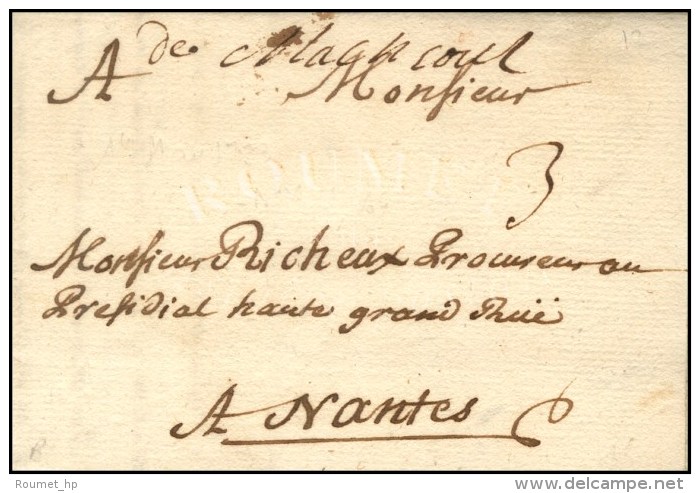 de Machcoul
A Monsieur
3
Monsieur Richeux Procureur au
Presidial haute grand Ruë
A Nantes
Roumet_hp
delcampe.net